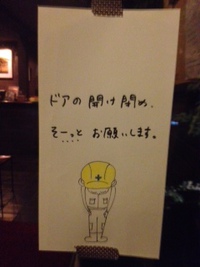 ドアの開け閉め、
そーっと お願いします。